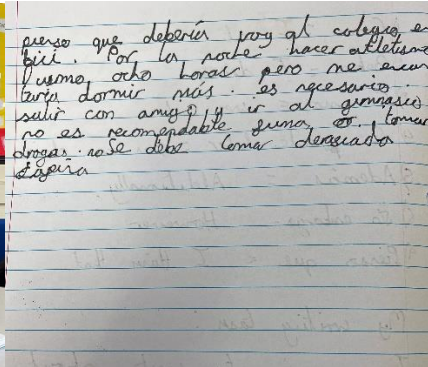 pienso que debería voy al colegio en
bici. Por la noche hacer atletismo
Duermo ocho horas pero me encan
taría dormir más. es necesario
salir con amigos y ir al gimnasio
no es recomendable fuma o tomar
drogas. no se debe tomar demasiada